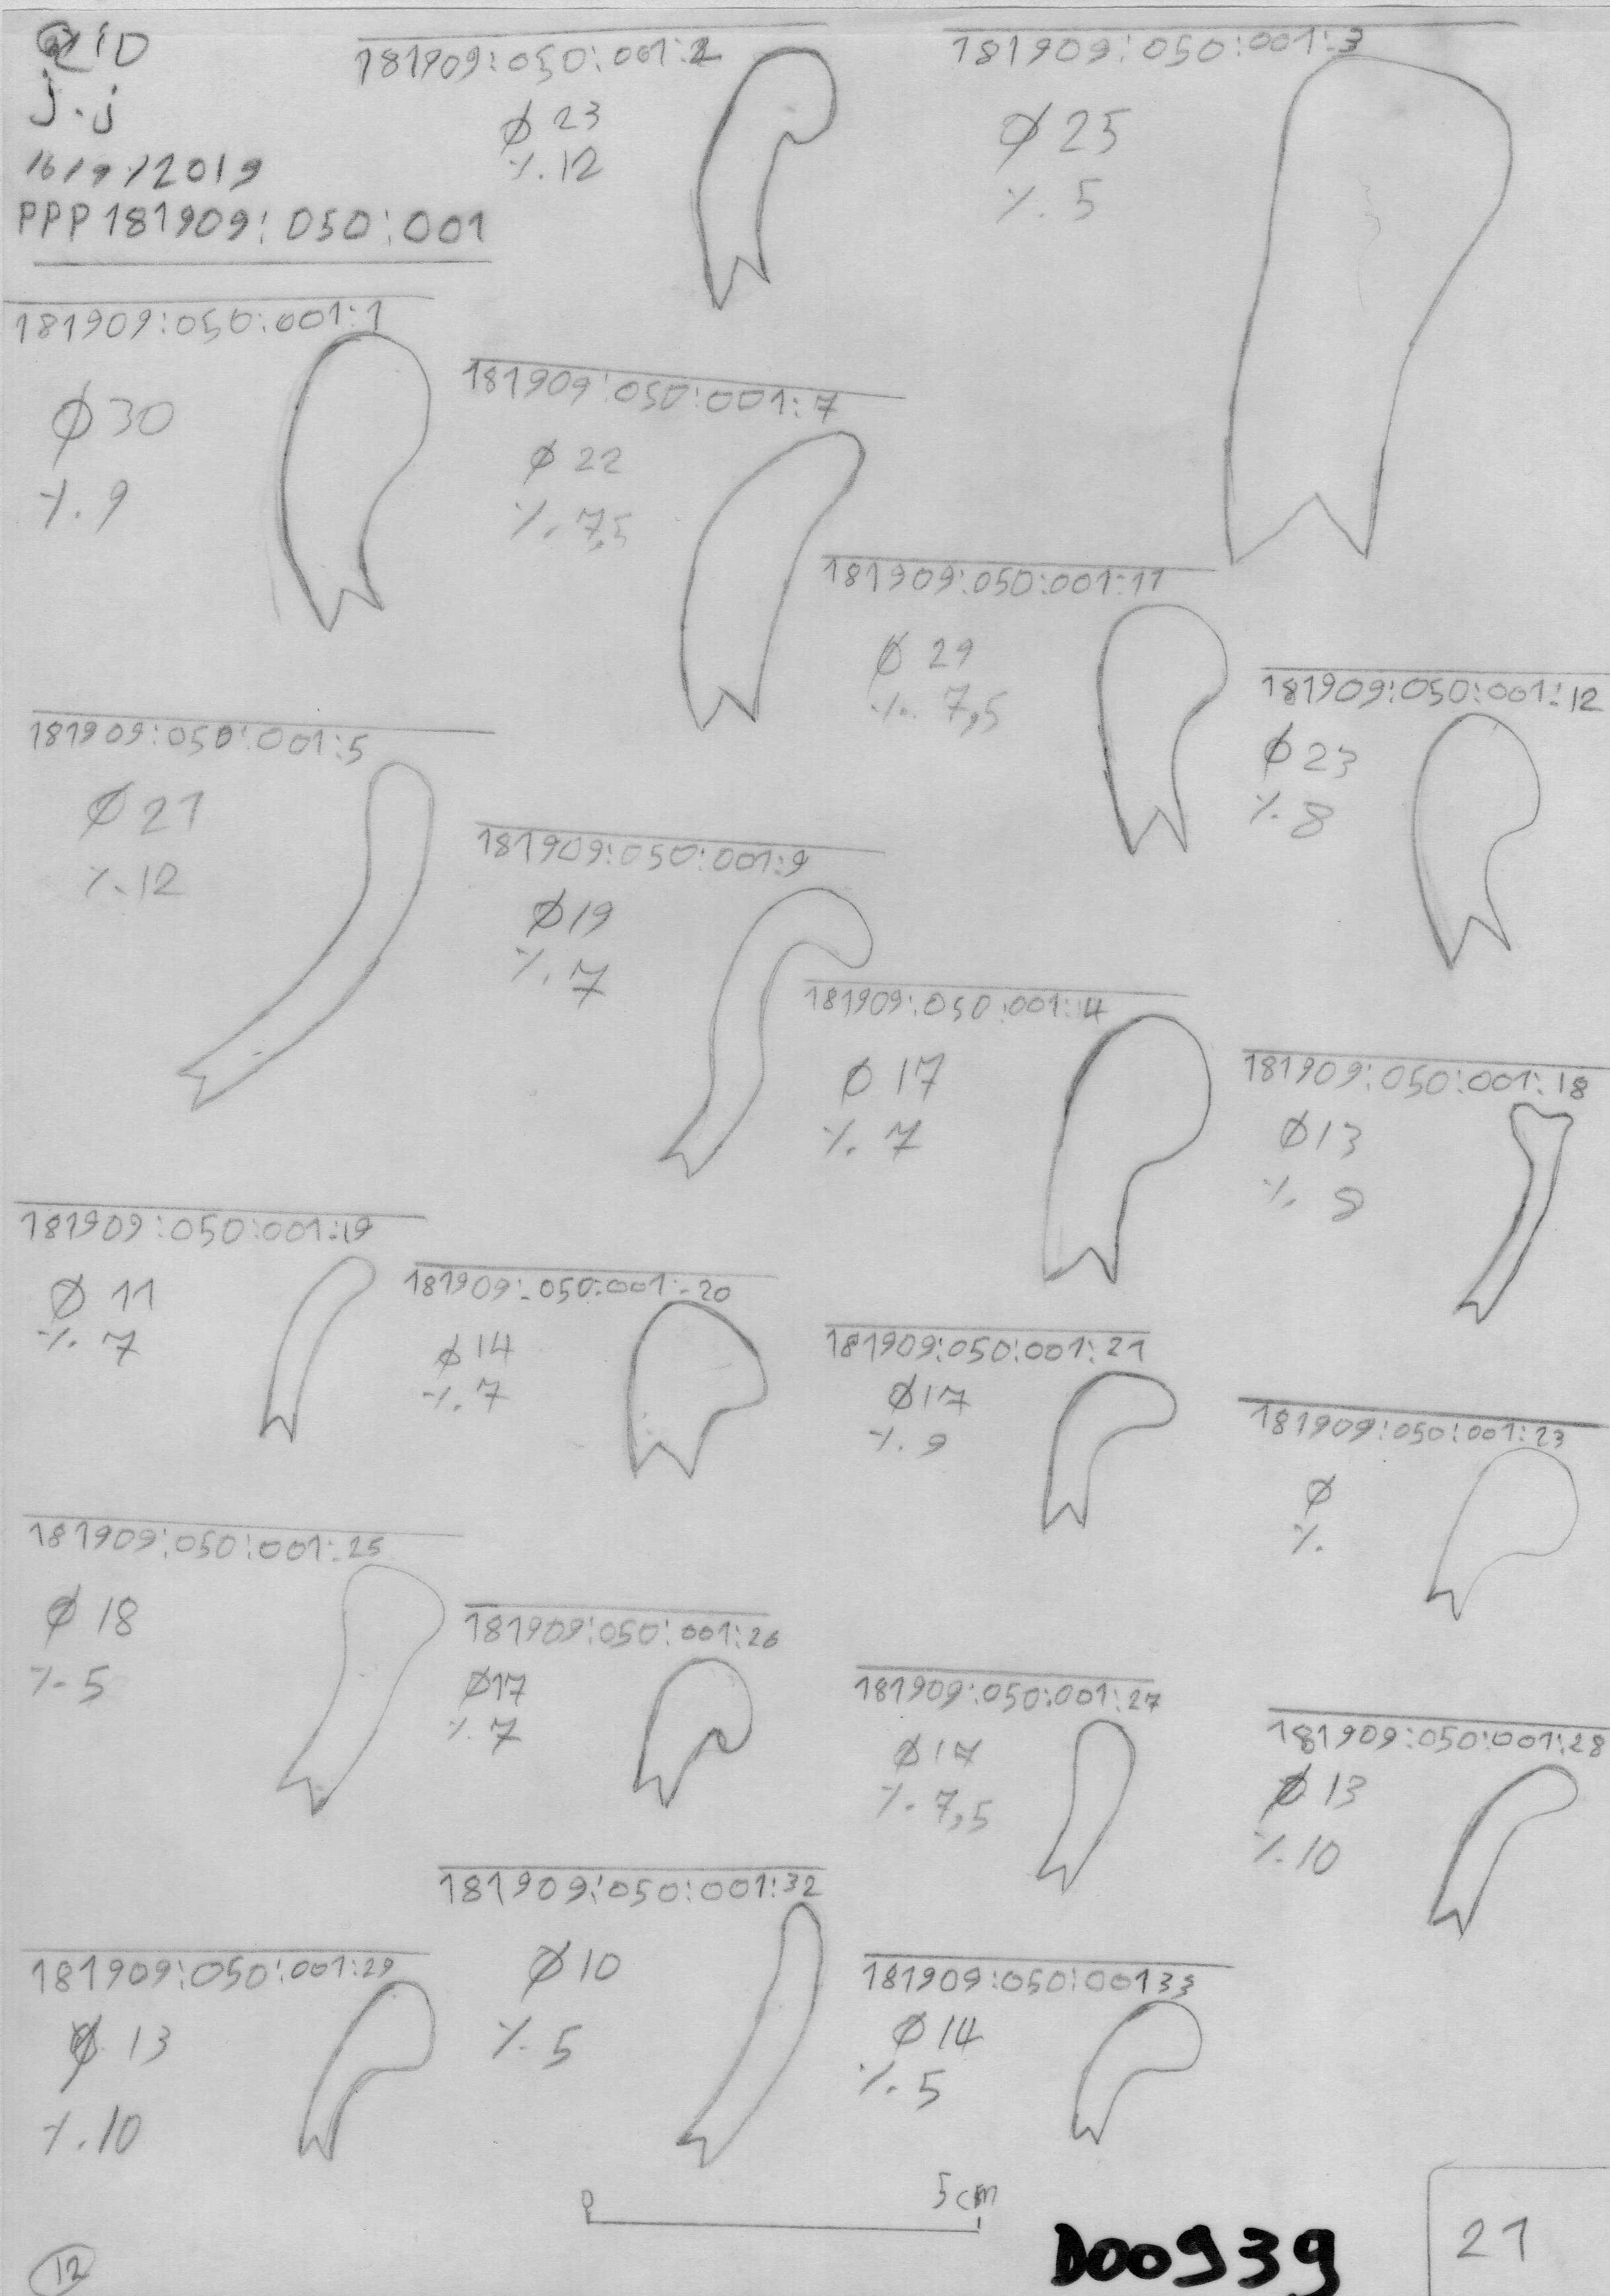 QID
J.J
16/9/2019
PPP181909:050:001
181909:050:001:2
Ø 23
%. 12
181909:050:001:3
Ø 25
%. 5
181909:050:001:1
Ø 30
%. 9
181909:050:001:7
Ø 22
%. 7,5
181909:050:001:11
Ø 29
%. 7,5
181909:050:001:12
Ø 23
%. 8
181909:050:001:5
Ø 21
%. 12
181909:050:001:9
Ø 19
%. 7
181909:050:001:14
Ø 17
%. 7
181909:050:001:18
Ø 13
%. 8
181909:050:001:19
Ø 11
%. 7
181909:050:001:20
Ø 14
%. 7
181909:050:001:21
Ø 17
%. 9
181909:050:001:23
Ø
%.
181909:050:001:25
Ø 18
%. 5
181909:050:001:26
Ø 17
%. 7
181909:050:001:27
Ø 17
%. 7,5
181909:050:001:28
Ø 13
%. 10
181909:050:001:29
Ø 13
%. 10
181909:050:001:32
Ø 10
%. 5
181909:050:00133
Ø 14
%. 5
0 5 cm
D00939
21
12